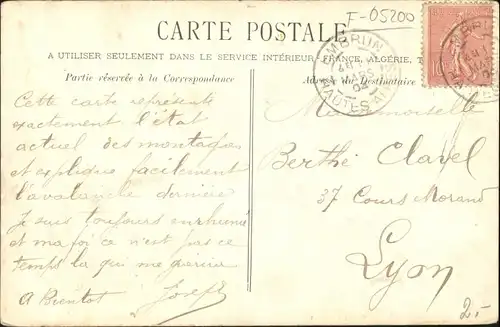 F-05200
CARTE POSTALE
A UTILISER SEULEMENT DANS LE SERVICE INTÉRIEUR (FRANCE, ALGÉRIE, T
Partie réservée à la Correspondance
Adresse du Destinataire
EMBRUN
HAUTES ALPES
04
Cette carte représente
exactement l'état
actuel des montagnes
et explique facilement
l'avalanche dernière
Je suis toujours enrhumé
et ma foi ce n'est pas ce
temps là qui me guérira
A Bientôt Joseph
Mademoiselle
Berthe Clavel
37 Cours Morand
Lyon
2.-